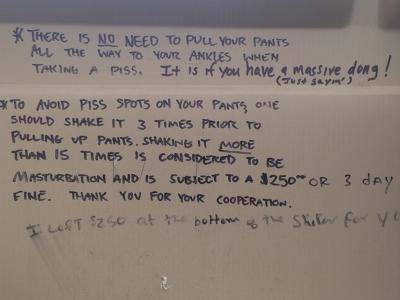 * THERE IS NO NEED TO PULL YOUR PANTS
ALL THE WAY TO YOUR ANKLES WHEN
TAKING A PISS. It is if you have a massive dong!
(Just sayin')
* TO AVOID PISS SPOTS ON YOUR PANTS, ONE
SHOULD SHAKE IT 3 TIMES PRIOR TO
PULLING UP PANTS. SHAKING IT MORE
THAN 15 TIMES IS CONSIDERED TO BE
MASTURBATION AND IS SUBJECT TO A $250⁰⁰ OR 3 DAY
FINE. THANK YOU FOR YOUR COOPERATION.
I Left $250 at the bottom of the for